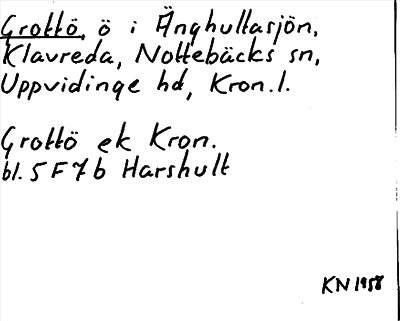 Grottö, ö i Änghultasjön,
Klavreda, Nottebäcks sn,
Uppvidinge hd, Kron.l.
Grottö ek Kron.
bl. 5 F 7 b Harshult
KN 1958